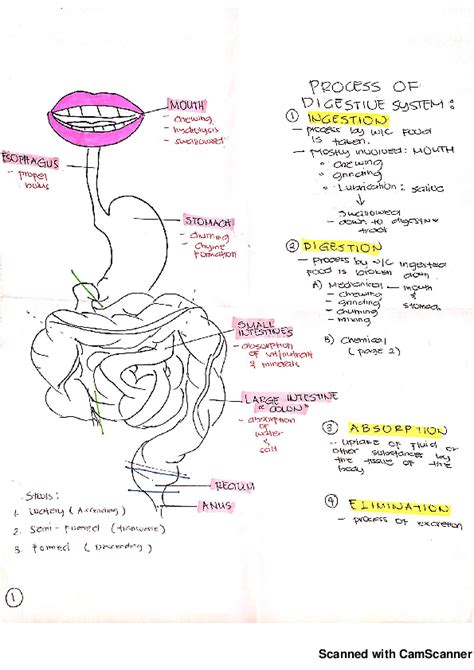 MOUTH
- chewing
- hydrolysis
- swallowed
ESOPHAGUS
- propel
bolus
STOMACH
- churning
- chyme
formation
SMALL
INTESTINES
- absorption
of vit/nutrient
& minerals
LARGE INTESTINE
"COLON"
- absorption
of
water
&
salt
RECTUM
ANUS
Stools:
1. watery (Ascending)
2. Semi-formed (transverse)
3. Formed (Descending)
1
PROCESS OF
DIGESTIVE SYSTEM:
1 INGESTION
- process by w/c food
is taken.
- Mostly involved: MOUTH
° chewing
° grinding
° Lubrication: saliva
↓
swallowed
- down to digestive
tract
2 DIGESTION
- process by w/c ingested
food is broken down
A) Mechanical - mouth
- chewing &
- grinding stomach
- churning
- mixing
B) Chemical
(page 2)
3 ABSORPTION
- uptake of fluid or
other substances by
the tissue of the
body
4 ELIMINATION
- process of excretion
Scanned with CamScanner